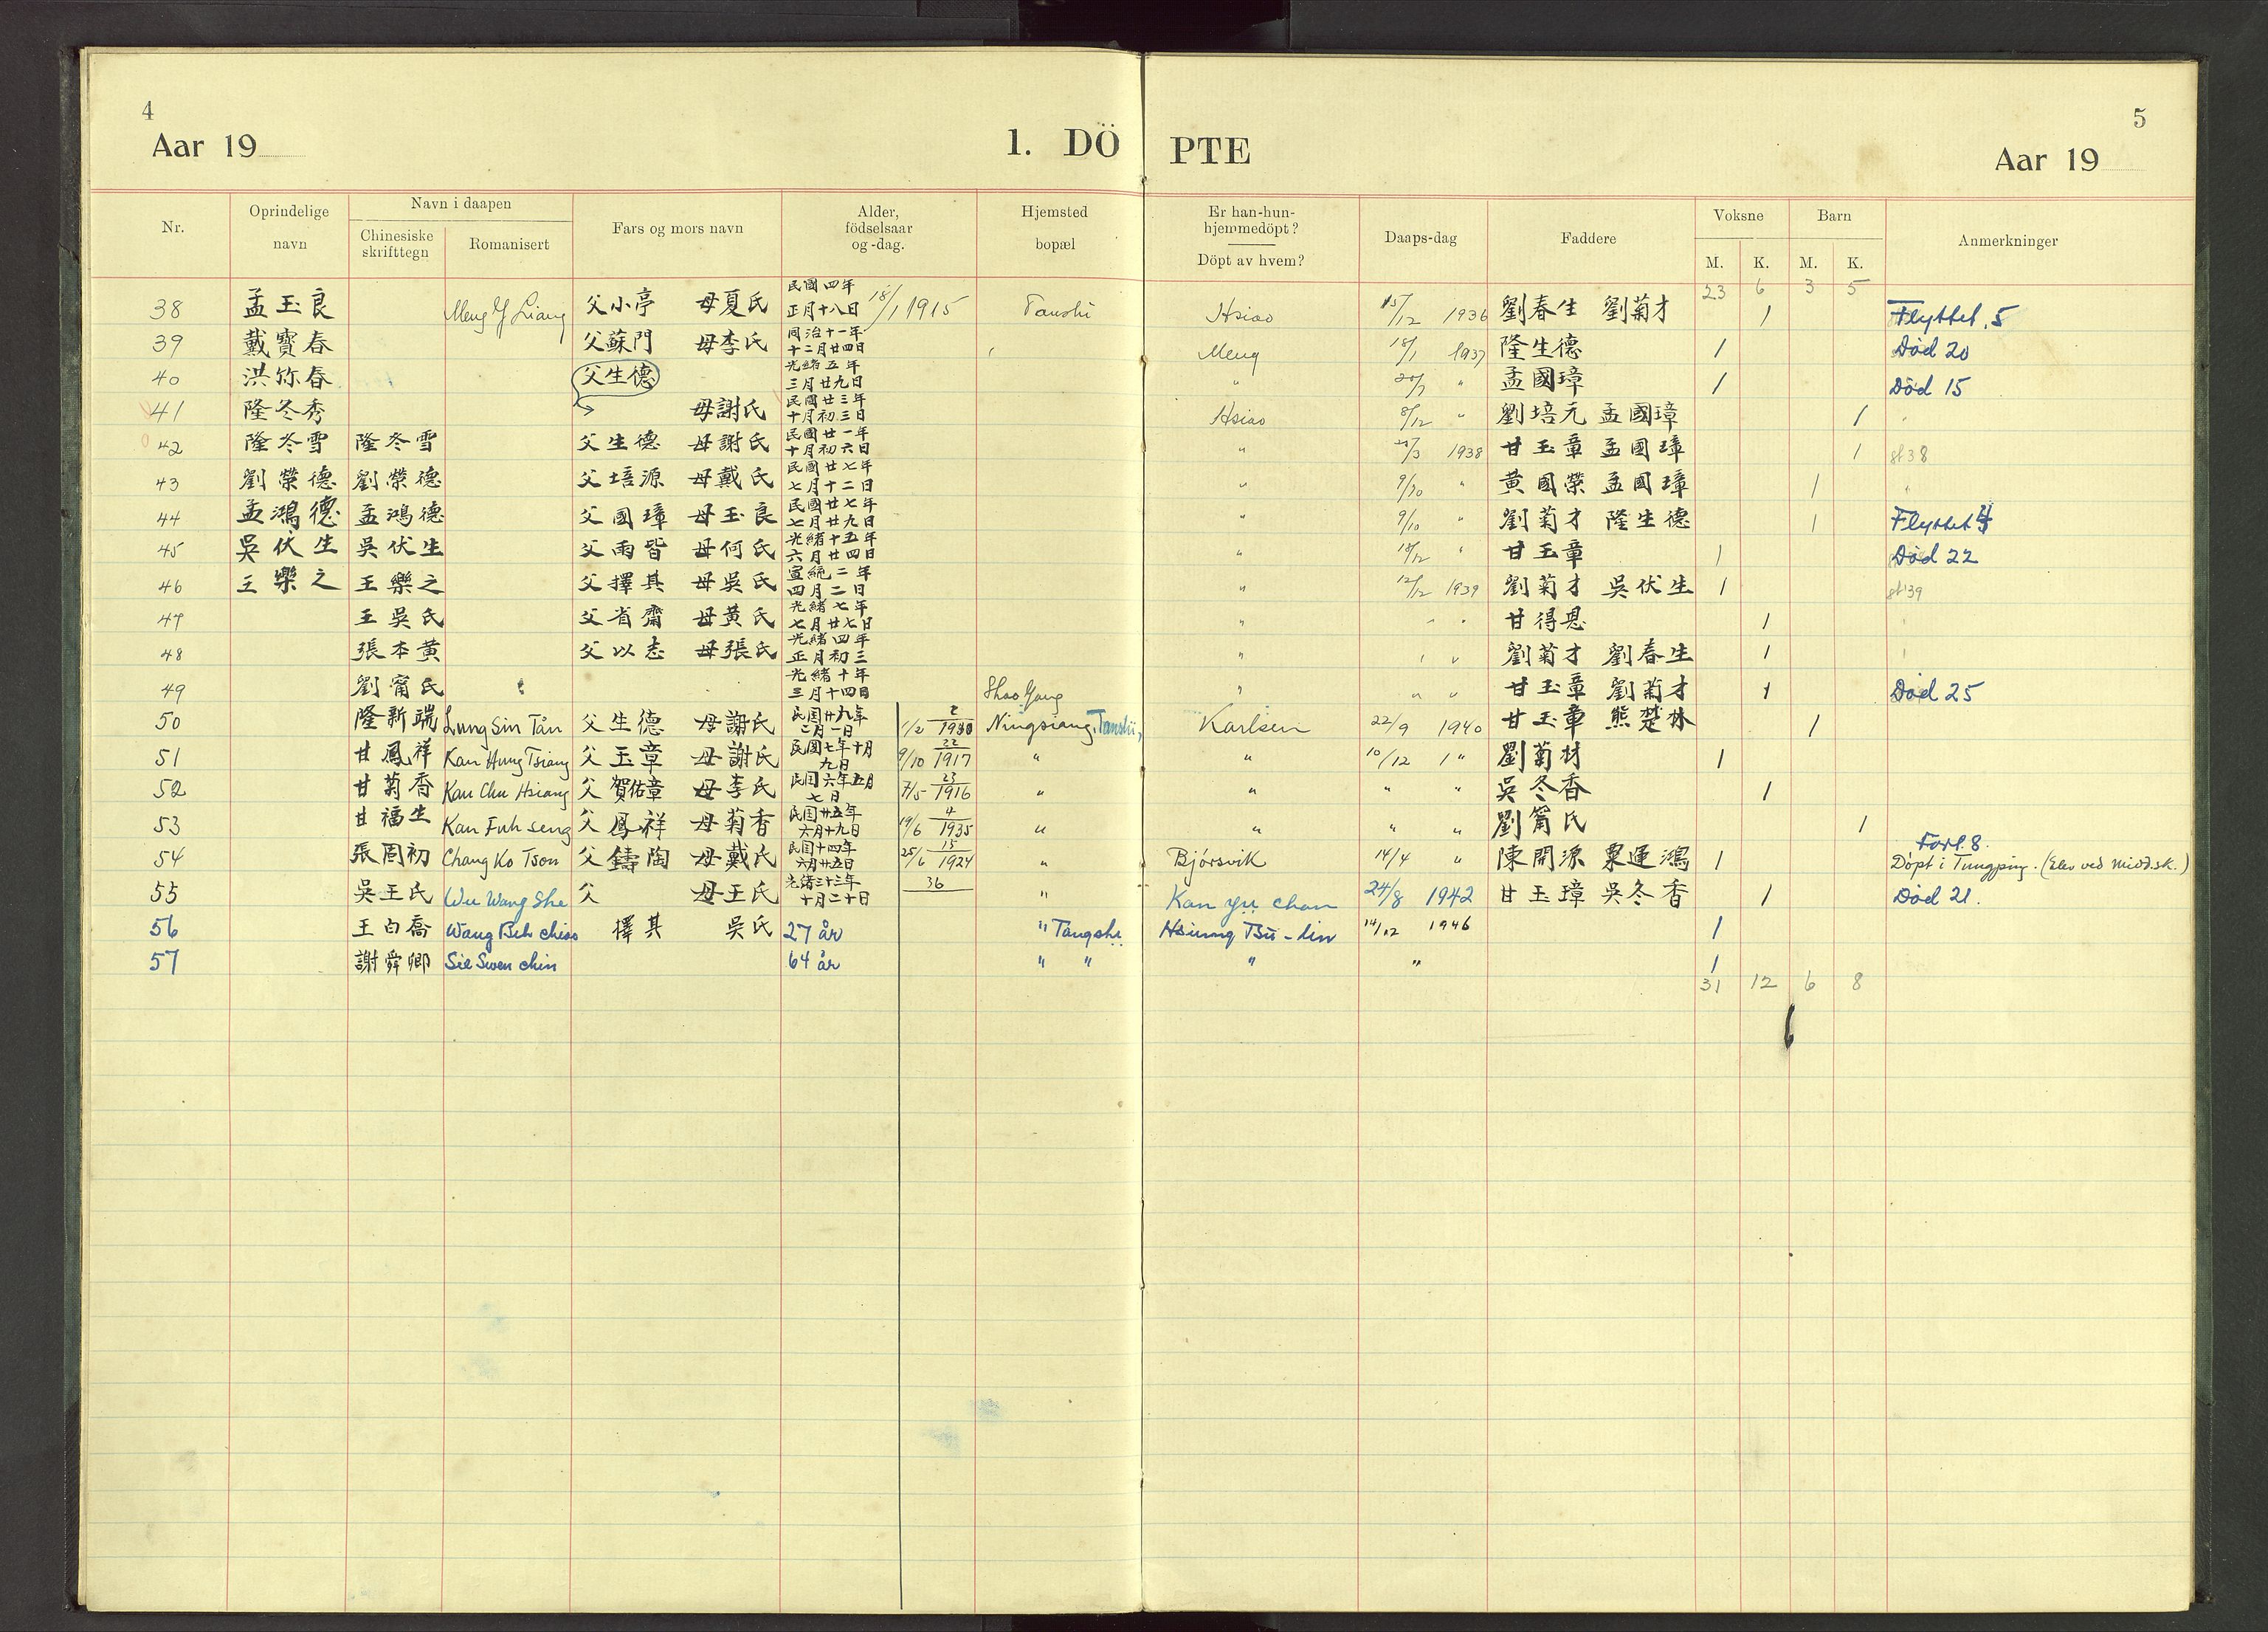 4
5
Aar 19
1. DÖ PTE
Aar 19
Nr.
Oprindelige navn
Navn i daapen
Chinesiske skrifttegn
Romanisert
Fars og mors navn
Alder, födselsaar og -dag.
Hjemsted bopæl
Er han-hun-hjemmedöpt?
Döpt av hvem?
Daaps-dag
Faddere
Voksne
M. K.
Barn
M. K.
Anmerkninger
23 6 3 5
38 孟玉良 Meng Y Liang 父小亭 母夏氏 民國四年正月十八日 18/1 1915 Tanshi Hsiao 15/12 1936 劉春生 劉菊才 1 Flyttet. 5
39 戴寶春 父蘇門 母李氏 同治十一年十二月廿四日 Meng 18/1 1937 隆生德 1 Død 20
40 洪弥春 父生德 光緒五年三月廿九日 " " 孟國璋 1 Død 15
41 隆冬秀 母謝氏 民國廿三年十月初三日 Hsiao 8/12 " 劉培元 孟國璋 1
42 隆冬雪 隆冬雪 父生德 母謝氏 民國廿一年十月初六日 " 1938 甘玉章 孟國璋 1 st 38
43 劉榮德 劉榮德 父培源 母戴氏 民國廿七年七月十二日 " 9/10 " 黄國榮 孟國璋 1 "
44 孟鴻德 孟鴻德 父國璋 母玉良 民國廿七年七月廿九日 " 9/10 " 劉菊才 隆生德 1 Flyttet
45 吳伏生 吳伏生 父雨皆 母何氏 光緒十五年六月廿四日 " 18/12 " 甘玉章 1 Død 22
46 王樂之 王樂之 父擇其 母吳氏 宣統二年四月二日 " 12/12 1939 劉菊才 吳伏生 1 st 39
47 王吳氏 父省齋 母黄氏 光緒七年七月廿七日 " " " 甘得恩 1
48 張本黄 父以志 母張氏 光緒四年正月初三 " " " 劉菊才 劉春生 1
49 劉甯氏 光緒十年三月十四日 Shao Yang " " " 甘玉章 劉菊才 1 Død 25
50 隆新端 Lung Sin Tån 父生德 母謝氏 民囯廿九年二月一日 1/2 2 1940 Ningsiang, Tanshi, Karlsen 22/9 1940 甘玉章 熊楚林 1
51 甘鳳祥 Kan Hung Tsiang 父玉章 母謝氏 民國七年十月九日 9/10 22 1917 " " 10/12 1 " 劉菊材 1
52 甘菊香 Kan Chu Hsiang 父賀佑章 母李氏 民囯六年五月七日 7/5 23 1916 " " " " 吳冬香 1
53 甘福生 Kan Fuh seng 父鳳祥 母菊香 民囯廿五年六月十九日 19/6 4 1935 " " " " 劉甯氏 1
54 張囯初 Chang Ko Tson 父鑄陶 母戴氏 民囯十四年六月廿五日 25/6 15 1924 " Bjørsvik 14/4 " 陳開源 粟運鴻 1 Forl. 8. Døpt i Tungping. (Elev ved Midd.sk.)
55 吳王氏 Wu Wang She 父 母王氏 光緒三十三年十月二十日 36 " Kan yü chan 24/8 1942 甘玉璋 吳冬香 1 Død 21.
56 王白喬 Wang Beh chiao 擇其 吳氏 27 år " Tangshi Hsiung Tsü-lin 14/12 1946 1
57 謝舜卿 Sie Swen chin 64 år " " " " 1
31 12 6 8